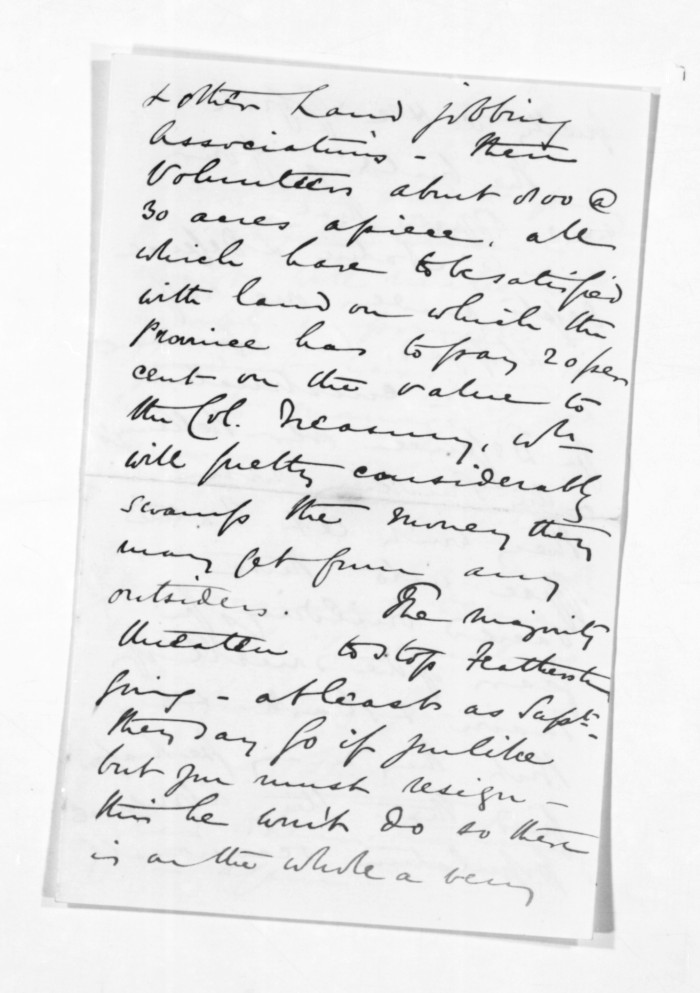 & other Land jobbing
Associations - then
Volunteers about 800 @
30 acres apiece, all
which have to be satisfied
with land on which the
Province has to pay 20 per
cent on the value to
the Col. Treasury, wh
will pretty considerably
swamp the money they
may get from any
outsiders. The majority
threaten to stop Featherston
going - at least as Supt.
they say go if you like
but you must resign -
this he won't do so there
is on the whole a very